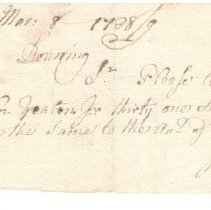 Mar. 8 1738/9
Downing
Sr. Please
Treaton Jr thirty one
the same to the Acct. of